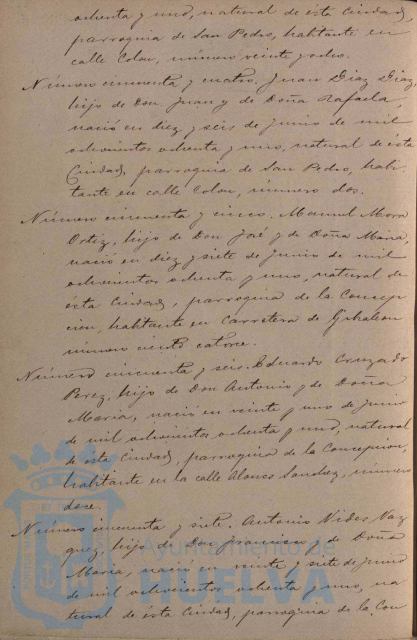 ochenta y uno, natural de ésta Ciudad,
parroquia de San Pedro, habitante en
calle Colon, número veinte y ocho.
Número cincuenta y cuatro. Juan Diaz Diaz,
hijo de Don Juan y de Doña Rafaela,
nació en diez y seis de junio de mil
ochocientos ochenta y uno, natural de ésta
Ciudad, parroquia de San Pedro, habi-
tante en calle Colon, número dos.
Número cincuenta y cinco. Manuel Mora
Ortiz, hijo de Don José y de Doña Maria,
nació en diez y siete de junio de mil
ochocientos ochenta y uno, natural de
ésta Ciudad, parroquia de la Concep
cion, habitante en Carretera de Gibraleon
número ciento catorce.
Número cincuenta y seis. Eduardo Cruzado
Perez, hijo de Don Antonio y de Doña
Maria, nació en veinte y uno de junio
de mil ochocientos ochenta y uno, natural
de ésta Ciudad, parroquia de la Concepcion,
habitante en la calle Alonso Sanchez, número
doce.
Número cincuenta y siete. Antonio Vides Vaz
quez, hijo de Don Francisco y de Doña
Maria, nació en veinte y siete de junio
de mil ochocientos ochenta y uno, na
tural de ésta Ciudad, parroquia de la Con
Ayuntamiento de
HUELVA